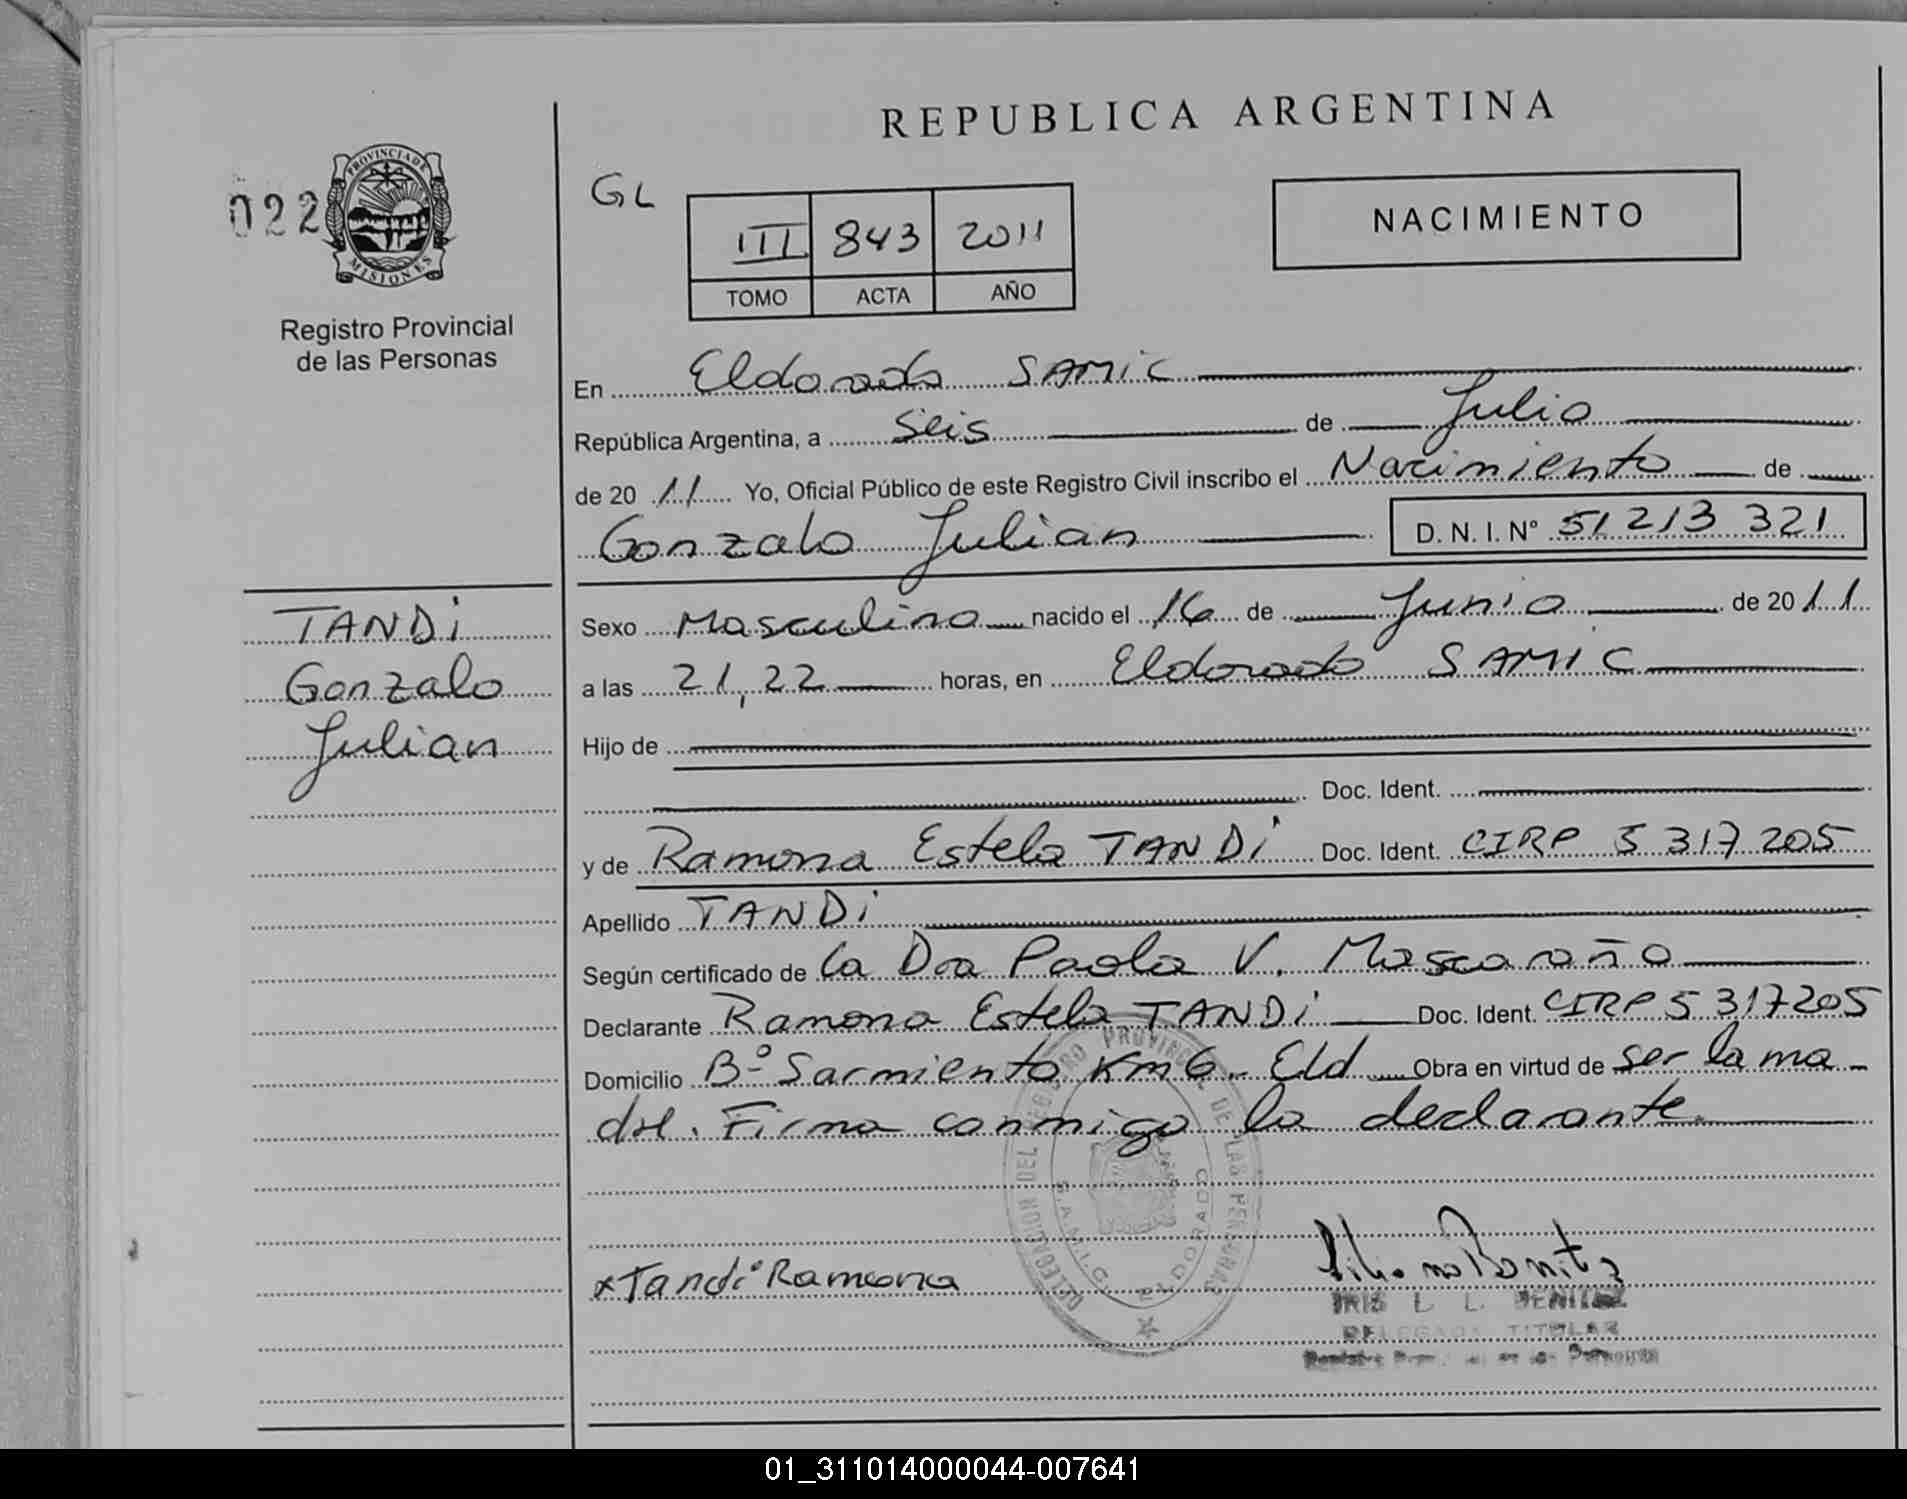 REPUBLICA ARGENTINA
022
PROVINCIA DE
MISIONES
Registro Provincial
de las Personas
GL
III 843 2011
TOMO ACTA AÑO
NACIMIENTO
En Eldorado SAMIC
República Argentina, a Seis de Julio
de 20 11 Yo, Oficial Público de este Registro Civil inscribo el Nacimiento de
Gonzalo Julian D. N. I. Nº 51 213 321
TANDi
Gonzalo
Julian
Sexo Masculino nacido el 16 de Junio de 20 11
a las 21,22 horas, en Eldorado SAMIC
Hijo de
Doc. Ident.
y de Ramona Estela TANDi Doc. Ident. CIRP 5 317 205
Apellido TANDi
Según certificado de la Dra Paola V. Mascaraño
Declarante Ramona Estela TANDi Doc. Ident. CIRP 5 317205
Domicilio Bº Sarmiento Km 6 - Eld Obra en virtud de ser la ma-
dre. Firma conmigo la declarante.
DELEGACION DEL REGISTRO PROVINCIAL DE LAS PERSONAS
S.A.M.I.C. ELDORADO
x Tandi Ramona
IRIS L. L. BENITEZ
DELEGADA TITULAR
01_311014000044-007641